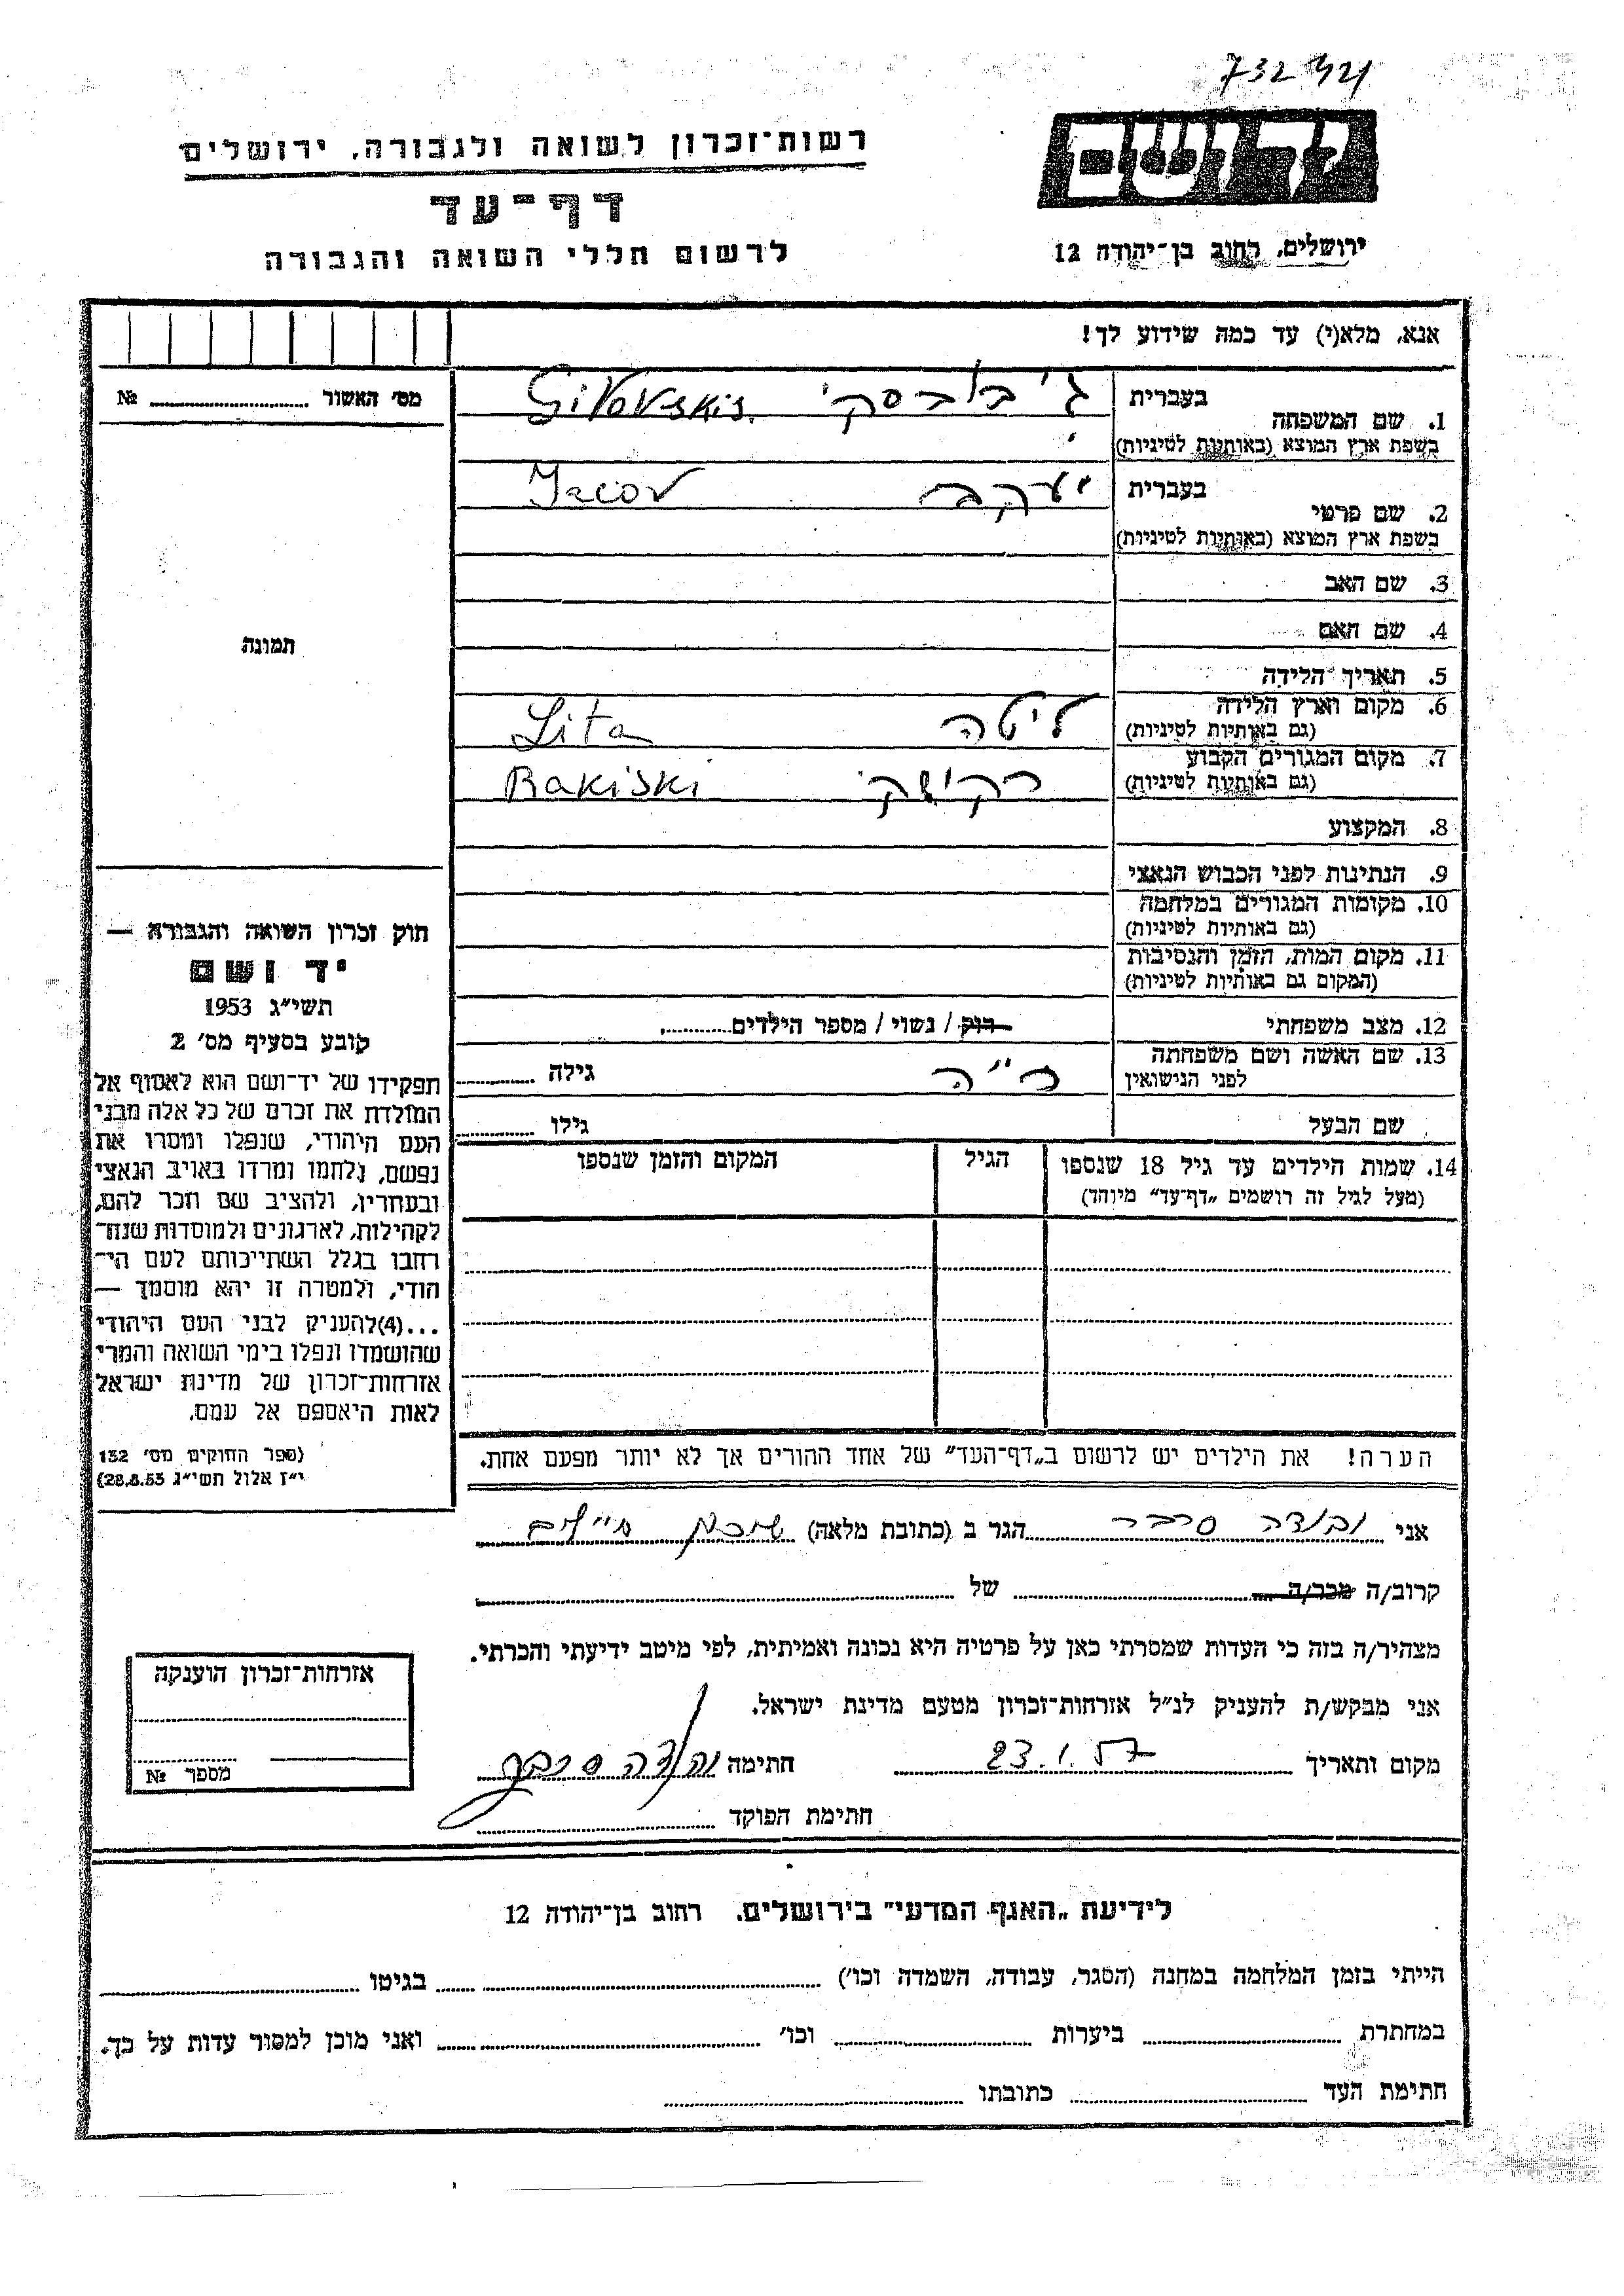 732 421
יד ושם
רשות־זכרון לשואה ולגבורה, ירושלים
דף־עד
לרשום חללי השואה והגבורה
ירושלים, רחוב בן־יהודה 12
אנא, מלא(י) עד כמה שידוע לך!
מס' האשור № 
1. שם המשפחה
בעברית
בשפת ארץ המוצא (באותיות לטיניות)
2. שם פרטי
בעברית יעקב Jacov
בשפת ארץ המוצא (באותיות לטיניות)
3. שם האב
4. שם האם
5. תאריך הלידה
6. מקום וארץ הלידה ליטה Lita
(גם באותיות לטיניות)
7. מקום המגורים הקבוע רקישקי Rakiski
(גם באותיות לטיניות)
8. המקצוע
9. הנתינות לפני הכבוש הנאצי
10. מקומות המגורים במלחמה
(גם באותיות לטיניות)
11. מקום המות, הזמן והנסיבות
(המקום גם באותיות לטיניות)
12. מצב משפחתי רוק / נשוי / מספר הילדים
13. שם האשה ושם משפחתה גילה
לפני הנישואין
שם הבעל גילו
14. שמות הילדים עד גיל 18 שנספו הגיל המקום והזמן שנספו
(מעל לגיל זה רושמים „דף־עד" מיוחד)
הערה! את הילדים יש לרשום ב„דף־העד" של אחד ההורים אך לא יותר מפעם אחת.
תמונה
חוק זכרון השואה והגבורה —
יד ושם
תשי"ג 1953
קובע בסעיף מס' 2
תפקידו של יד־ושם הוא לאסוף אל
המולדת את זכרם של כל אלה מבני
העם היהודי, שנפלו ומסרו את
נפשם, נלחמו ומרדו באויב הנאצי
ובעוזריו, ולהציב שם וזכר להם,
לקהילות, לארגונים ולמוסדות שנח־
רבו בגלל השתייכותם לעם הי־
הודי, ולמטרה זו יהא מוסמך —
...(4)להעניק לבני העם היהודי
שהושמדו ונפלו בימי השואה והמרי
אזרחות־זכרון של מדינת ישראל
לאות היאספם אל עמם.
(ספר החוקים מס' 132
י"ז אלול תשי"ג 28.8.53)
אני הגר ב (כתובת מלאה)
קרוב/ה מכר/ה של
מצהיר/ה בזה כי העדות שמסרתי כאן על פרטיה היא נכונה ואמיתית, לפי מיטב ידיעתי והכרתי.
אני מבקש/ת להעניק לנ"ל אזרחות־זכרון מטעם מדינת ישראל.
מקום ותאריך 23.1.57 חתימה
חתימת הפוקד
אזרחות־זכרון הוענקה
מספר №
לידיעת „האגף המדעי" בירושלים, רחוב בן־יהודה 12
הייתי בזמן המלחמה במחנה (הסגר, עבודה, השמדה וכו') בגיטו
במחתרת ביערות וכו' ואני מוכן למסור עדות על כך.
חתימת העד כתובתו